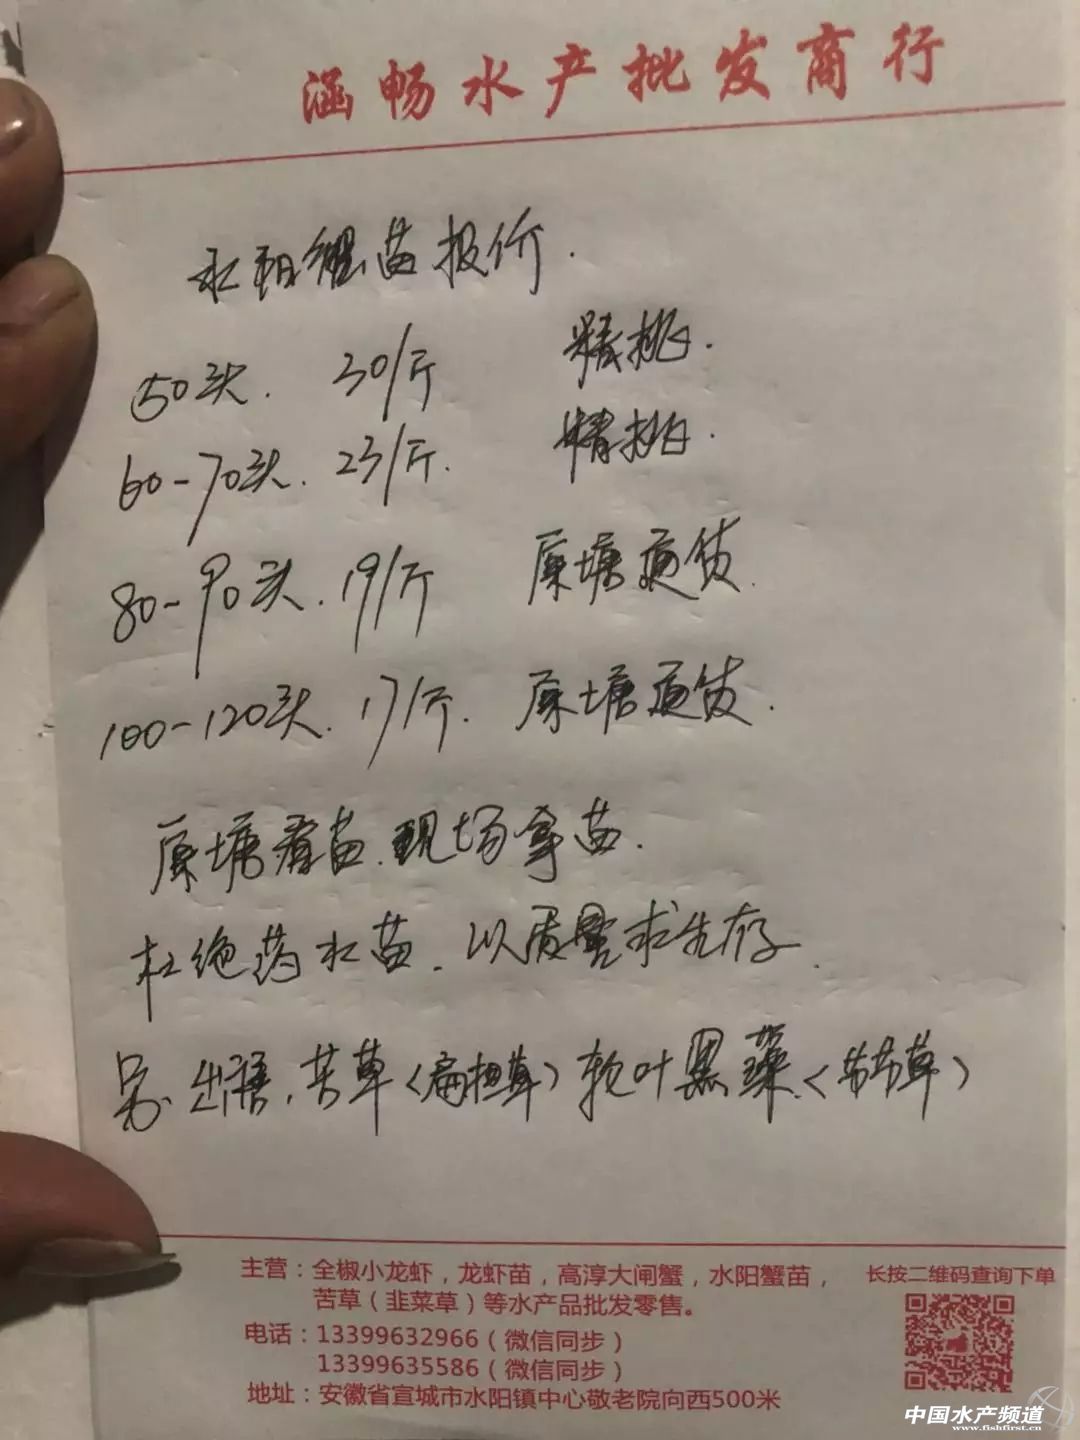 涵畅水产批发商行
水阳蟹苗报价.
50头. 30/斤 精挑.
60-70头. 23/斤. 精挑.
80-90头. 19/斤 原塘通货.
100-120头. 17/斤. 原塘通货.
原塘看苗.现场拿苗.
杜绝药水苗.以质量求生存.
另出售,苦草(扁担草)软叶黑藻.(节节草)
主营:全椒小龙虾,龙虾苗,高淳大闸蟹,水阳蟹苗,
苦草(韭菜草)等水产品批发零售。
电话:13399632966(微信同步)
13399635586(微信同步)
地址:安徽省宣城市水阳镇中心敬老院向西500米
长按二维码查询下单
中国水产频道
www.fishfirst.cn